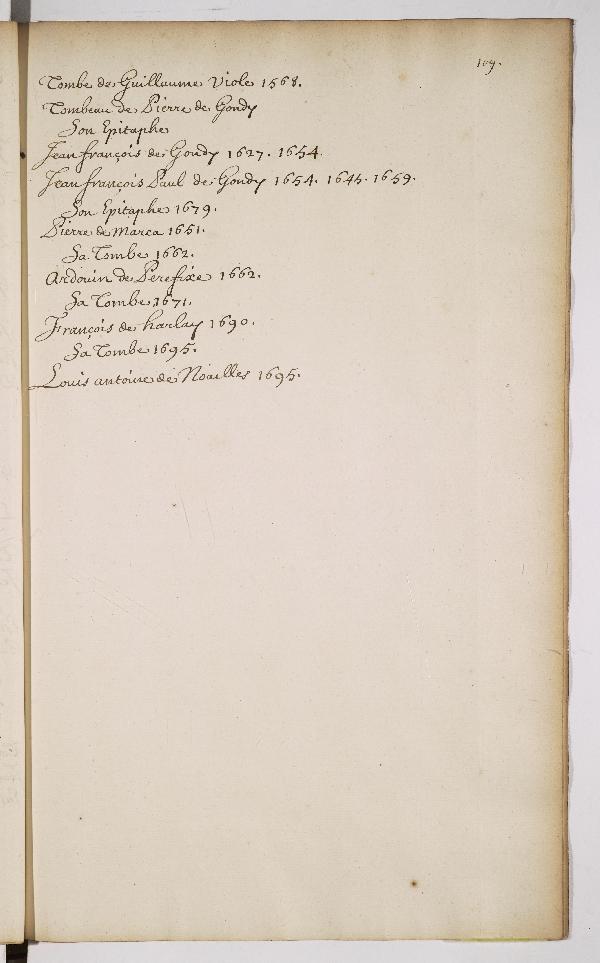 109.
Tombe de Guillaume Viole 1568.
Tombeau de Pierre de Gondy
Son Epitaphe
Jean françois de Gondy 1627. 1654.
Jean françois Paul de Gondy 1654. 1645. 1659.
Son Epitaphe 1679.
Pierre de Marca 1651.
Sa Tombe 1662.
Ardouin de Perefixe 1662.
Sa Tombe 1671.
François de harlay 1690.
Sa Tombe 1695.
Louis antoine de Noailles 1695.